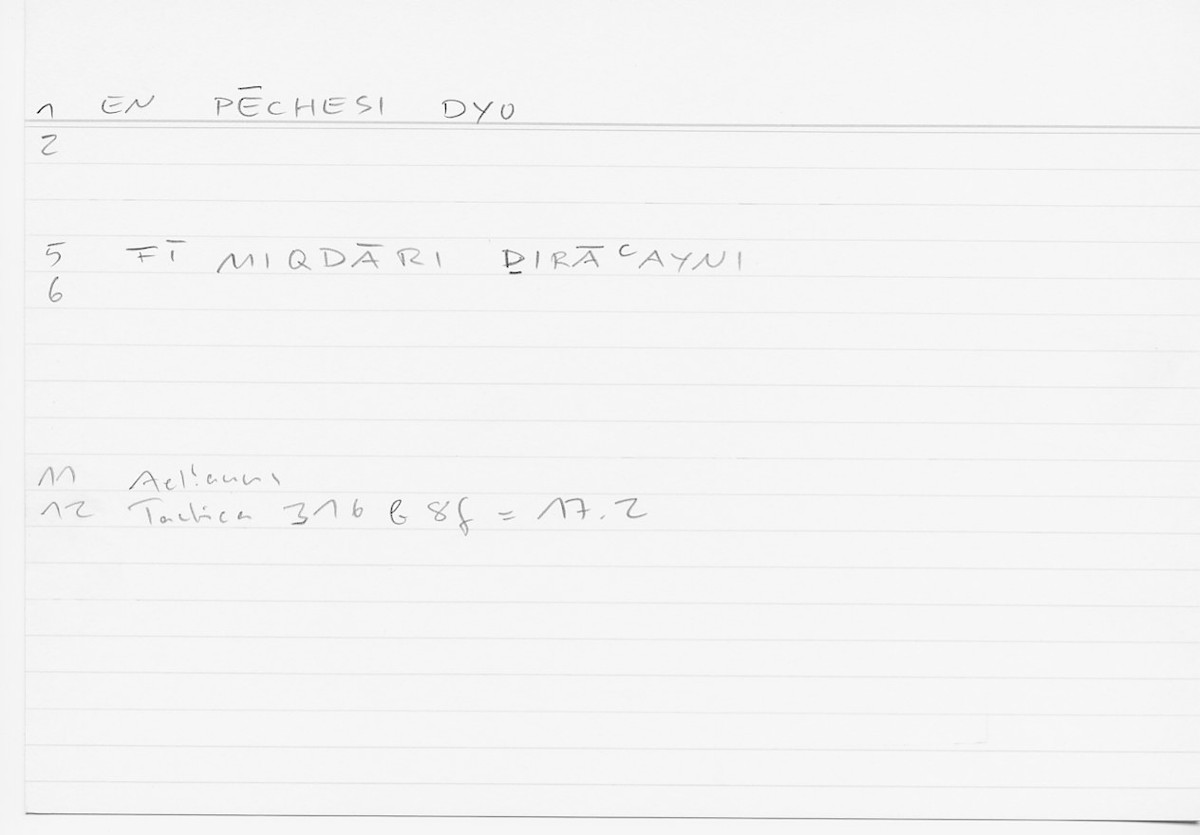 1 EN PĒCHESI DYO
2
5 FĪ MIQDĀRI ḎIRĀʿAYNI
6
11 Aelianus
12 Tactica 316 b 8f = 17.2